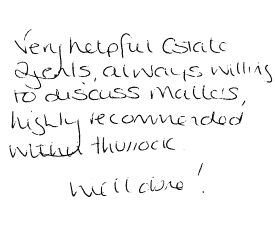 Very helpful Estate
Agents, always willing
to discuss matters,
highly recommended
within thurrock.
Well done!